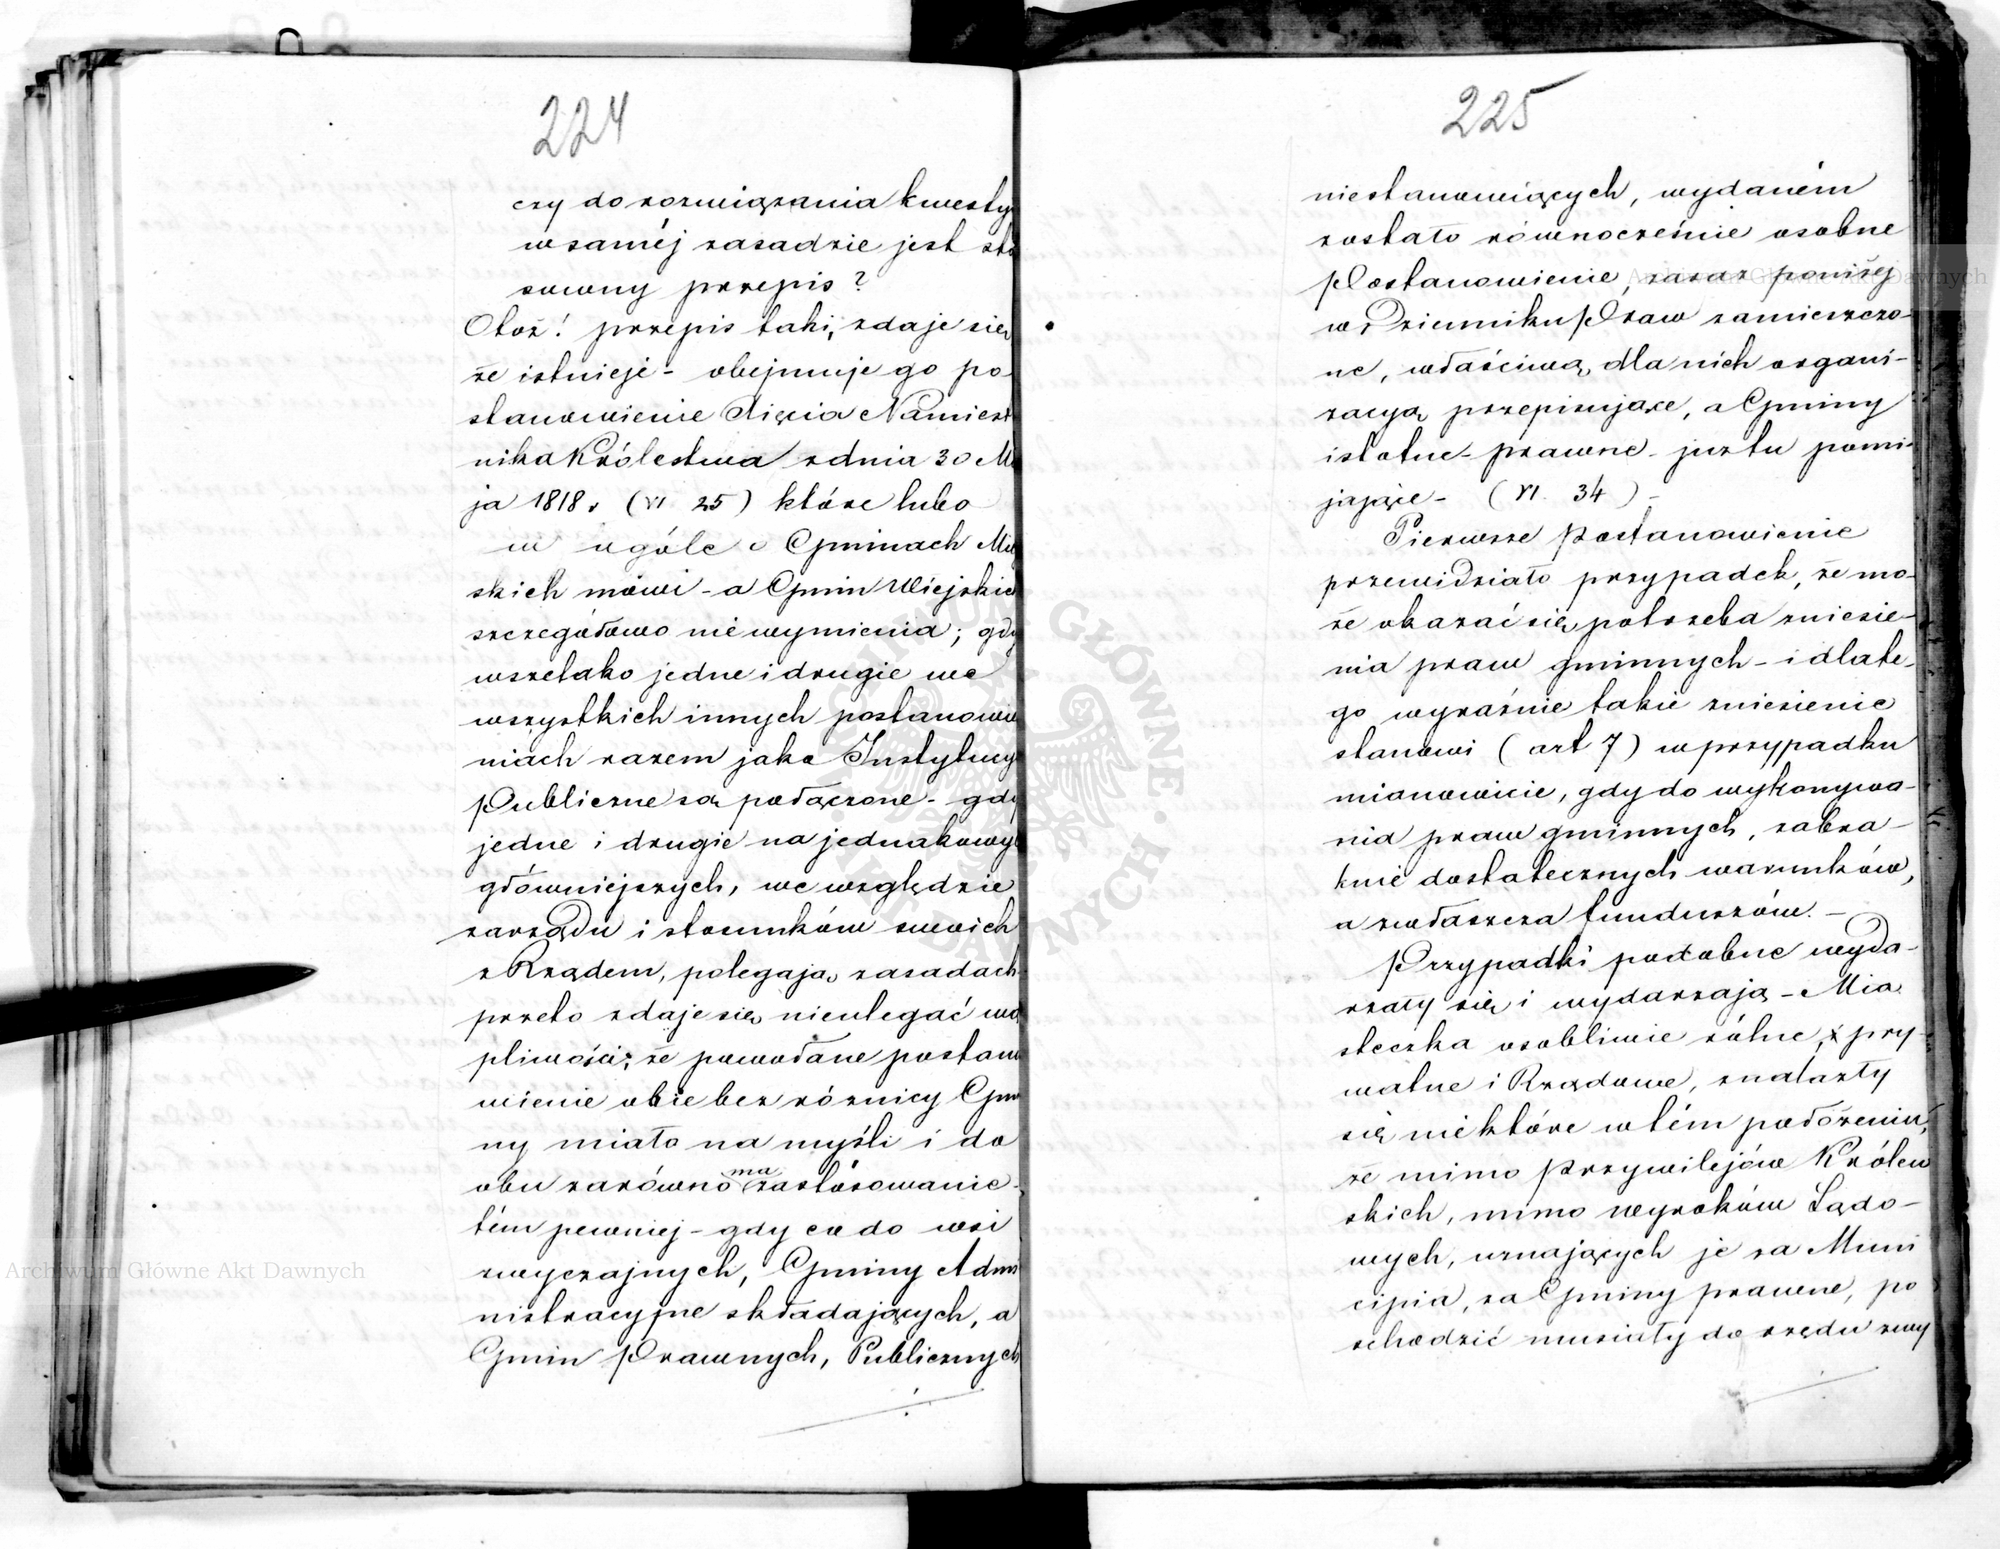 224
czy do rozwiązania kwesty
w saméj zasadzie jest sto
sowny przepis?
Otoż! przepis taki, zdaje się
że istnieje - obejmuje go po
stanowienie Xięcia Namiest
nika Królestwa z dnia 30 Ma
ja 1818 r. (VI 25) które lubo
w ogóle o Gminach Miej
skich mówi - a Gmin Wiejskich
szczegółowo nie wymienia; gdy
wszelako jedne i drugie we
wszystkich innych postanowie
niach razem jako Instytucye
Publiczne są połączone - gdy
jedne i drugie na jednakowych
główniejszych, we względzie
zarządu i stosunków swoich
z Rządem, polegają zasadach
przeto zdaje się nieulegać wą
pliwości; że powołane postano
wienie obie bez różnicy Gmi
ny miało na myśli i do
obu zarówno ma zastósowanie -
tém pewniej - gdy co do wsi
zwyczajnych, Gminy Admi
nistracyjne składających, a
Gmin Prawnych, Publicznych
225
niestanowiących, wydaném
zostało równocześnie osobne
Postanowienie, zaraz poniżej
w Dzienniku Praw zamieszczo-
ne, właściwą dla nich organi-
zacyą przepisujące, a Gminy
istotne - prawne - już tu pomi-
jające - (VI. 34) -
Pierwsze postanowienie
przewidziało przypadek, że mo-
że okazać się potrzeba zniesie-
nia praw gminnych - i dlate-
go wyraźnie takie zniesienie
stanowi (art 7) w przypadku
mianowicie, gdy do wykonywa-
nia praw gminnych, zabra-
knie dostatecznych warunków,
a zwłaszcza funduszów. -
Przypadki podobne wyda-
rzały się i wydarzają - Mia
steczka osobliwie rólne, pry-
watne i Rządowe, znalazły
się niektóre w tém położeniu,
że mimo przywilejów Królew
skich, mimo wyroków Sądo-
wych, uznających je za Muni
cipia, za Gminy prawne, po
schodzić musiały do rzędu zwy
Archiwum Główne Akt Dawnych
Archiwum Główne Akt Dawnych
ARCHIWUM GŁÓWNE AKT DAWNYCH